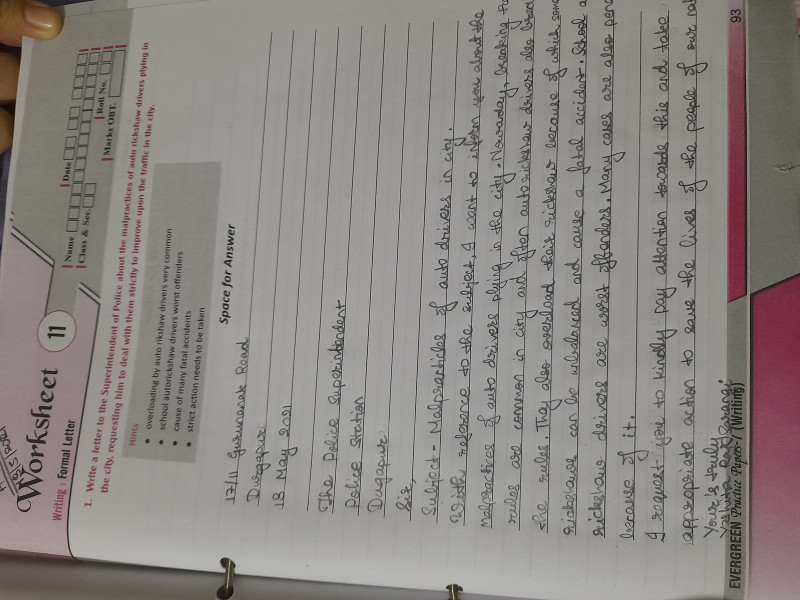 Worksheet 11
Writing : Formal Letter
Name
Date
Class & Sec.
Roll No.
Marks OBT.
1. Write a letter to the Superintendent of Police about the malpractices of auto rickshaw drivers plying in
the city, requesting him to deal with them strictly to improve upon the traffic in the city.
Hints
• overloading by auto rikshaw drivers very common
• school autorickshaw drivers worst offenders
• cause of many fatal accidents
• strict action needs to be taken
Space for Answer
17/11 Gurunanak Road
Durgapur
18 May 2021
The Police Superintendent
Police Station
Dugapur
Sir,
Subject - Malpracticles of auto drivers in city.
With reference to the subject, I want to inform you about the
malpractices of auto drivers plying in the city. Nowaday, breaking
rules are common in city and often auto rickshaw drivers also
the rules. They also overload their rickshaw because of which
rickshaws can be unbalanced and cause a fatal accident. School
rickshaw drivers are worst offenders. Many cases are also
because of it.
I request you to kindly pay attention towards this and take
appropriate action to save the lives of the people of our
Your's truly
EVERGREEN Practice Papers-7 (Writing)
93